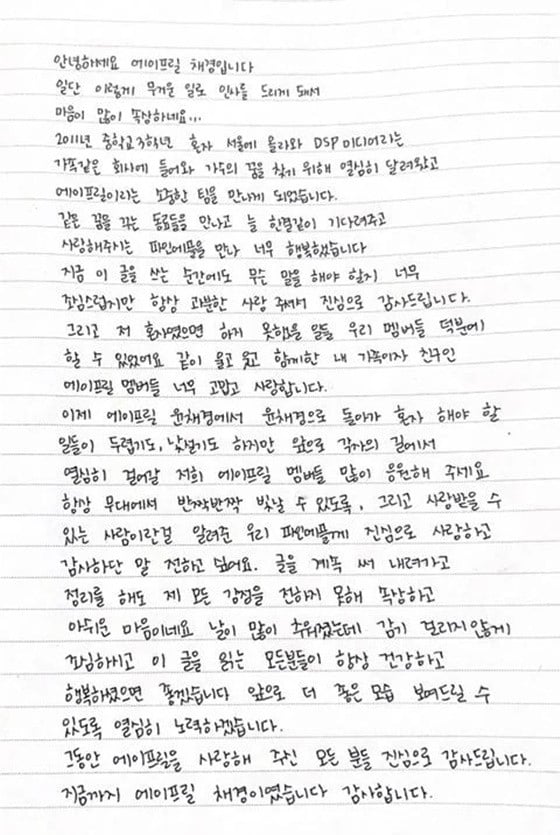 안녕하세요 에이프릴 채경입니다
일단 이렇게 무거운 일로 인사를 드리게 돼서
마음이 많이 속상하네요...
2011년 중학교 3학년 혼자 서울에 올라와 DSP 미디어라는
가족같은 회사에 들어와 가수의 꿈을 찾기 위해 열심히 달려왔고
에이프릴이라는 소중한 팀을 만나게 되었습니다.
같은 꿈을 꾸는 동료들을 만나고 늘 한결같이 기다려주고
사랑해주시는 파인에플을 만나 너무 행복했습니다
지금 이 글을 쓰는 순간에도 무슨 말을 해야 할지 너무
조심스럽지만 항상 과분한 사랑 주셔서 진심으로 감사드립니다.
그리고 저 혼자였으면 하지 못했을 일들 우리 멤버들 덕분에
할 수 있었어요 같이 울고 웃고 함께한 내 가족이자 친구인
에이프릴 멤버들 너무 고맙고 사랑합니다.
이제 에이프릴 윤채경에서 윤채경으로 돌아가 혼자 해야 할
일들이 두렵기도, 낯설기도 하지만 앞으로 각자의 길에서
열심히 걸어갈 저희 에이프릴 멤버들 많이 응원해 주세요
항상 무대에서 반짝반짝 빛날 수 있도록, 그리고 사랑받을 수
있는 사람이란걸 알려준 우리 파인에플에게 진심으로 사랑하고
감사하단 말 전하고 싶어요. 글을 계속 써 내려가고
정리를 해도 제 모든 감정을 전하지 못해 속상하고
아쉬운 마음이네요 날이 많이 추워졌는데 감기 걸리지 않게
조심하시고 이 글을 읽는 모든분들이 항상 건강하고
행복해졌으면 좋겠습니다 앞으로 더 좋은 모습 보여드릴 수
있도록 열심히 노력하겠습니다.
그동안 에이프릴을 사랑해 주신 모든 분들 진심으로 감사드립니다.
지금까지 에이프릴 채경이였습니다 감사합니다.